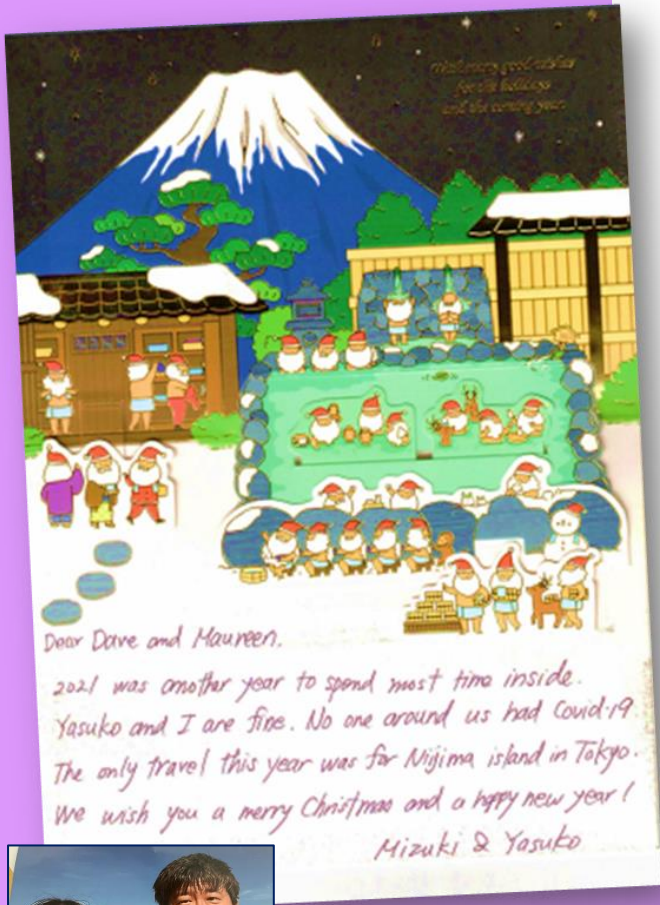 With many good wishes
for the holidays
and the coming year.
Dear Dave and Maureen.
2021 was another year to spend most time inside.
Yasuko and I are fine. No one around us had Covid-19.
The only travel this year was for Niijima island in Tokyo.
We wish you a merry Christmas and a happy new year!
Mizuki & Yasuko